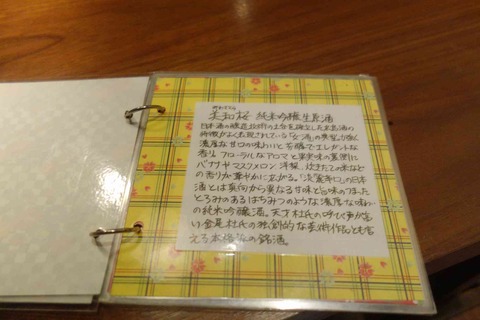 美和桜 純米吟醸生原酒
日本酒の醸造技術の土台を確立した広島酒の
特徴がよく表現されている「女酒」の典型。力強く
濃厚な甘口の味わいと芳醇でエレガントな
香り。フローラルなアロマと果実味の裏側に
バナナやマスクメロン、洋梨、炊きたての米など
の香りが豊かに広がる。「淡麗辛口」の日本
酒とは真向から異なる甘味と旨味のつまった
とろみのあるはちみつのような濃厚な味わい
の純米吟醸酒。天才杜氏の呼び声が高
い金尾杜氏の独創的な芸術作品とも言
える本格派の銘酒。